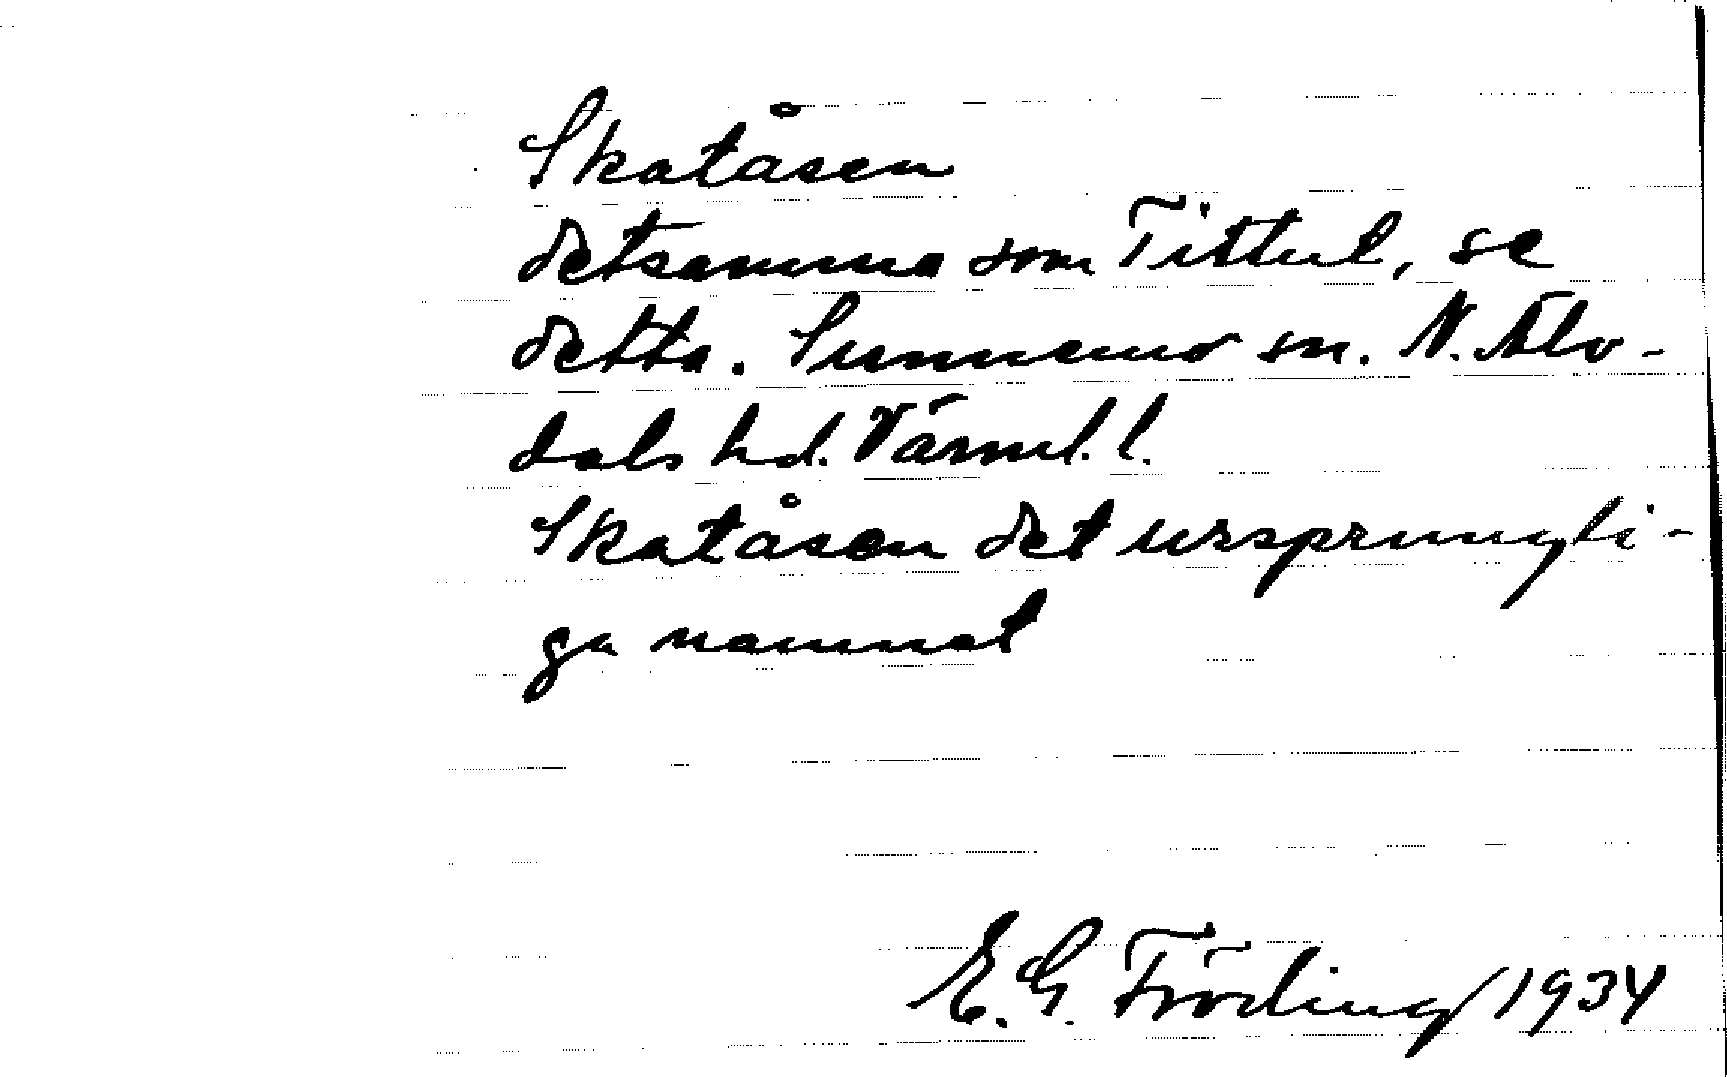 Skatåsen
detsamma som Tittut, se
detta. Sunnemo sn. N. Älv-
dals hd. Värml. l.
Skatåsen det ursprungli-
ga namnet
E. G. Fröding/1934